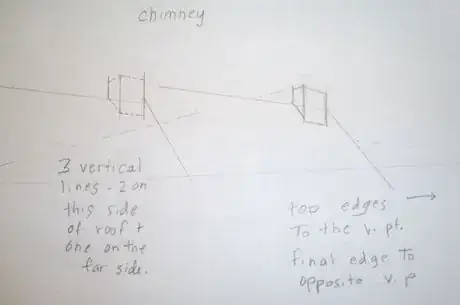 chimney
3 vertical
lines - 2 on
this side
of roof +
one on the
far side.
top edges
To the v. pt.
final edge To
opposite v. p